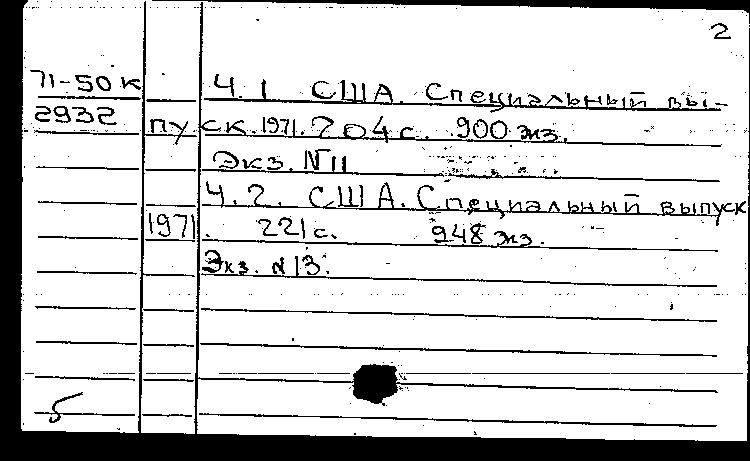 2
71-50к Ч. 1 США. Специальный вы-
2932 пуск. 1971. 204 с. 900 экз.
Экз. N 11
Ч. 2. США. Специальный выпуск
1971. 221 с. 948 экз.
Экз. N 13.
5